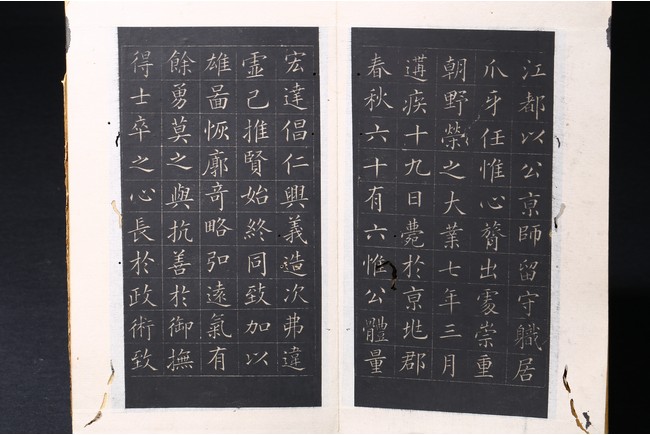 江都以公京師留守軄居
爪牙任惟心膂出處崇重
朝野榮之大業七年三月
遘疾十九日薨於京兆郡
春秋六十有六惟公體量
宏達倡仁興義造次弗違
虛己推賢始終同致加以
雄啚恢廓竒略弘遠氣有
餘勇莫之與抗善於御撫
得士卒之心長於政術致